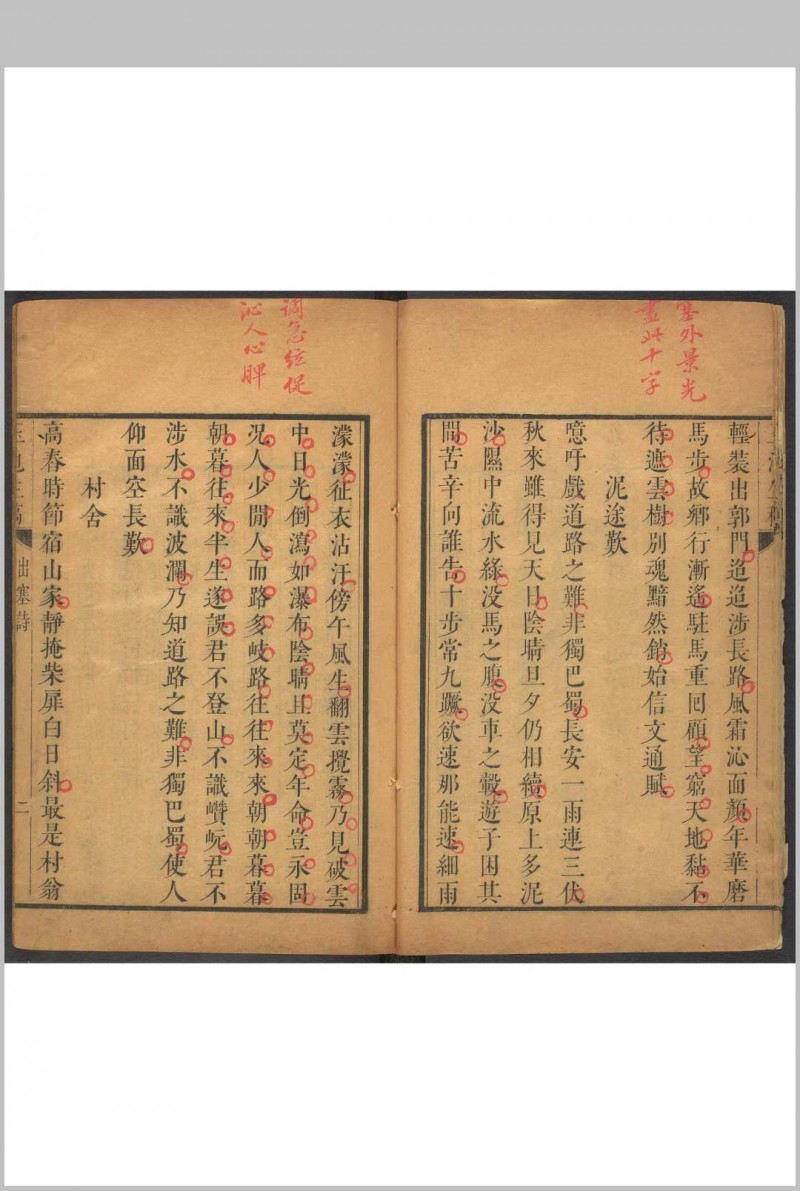 塞外景光
畫此十字
輕裝出郭門迢迢涉長路風霜沁面顏年華磨
馬步故鄉行漸遙駐馬重囘顧望窮天地黏不
待遮雲樹別魂黯然銷始信文通賦
泥途歎
噫吁戲道路之難非獨巴蜀長安一雨連三伏
秋來雖得見天日陰晴旦夕仍相續原上多泥
沙隰中流水綠没馬之腹没車之轂遊子困其
間苦辛向誰告十步常九蹶欲速那能速細雨
調急絃促
沁人心脾
濛濛征衣沾汗傍午風生翻雲攪霧乃見破雲
中日光倒瀉如瀑布陰晴且莫定年命豈永固
况人少閒人而路多岐路往往來來朝朝暮暮
朝暮往來半生遂誤君不登山不識巑岏君不
涉水不識波瀾乃知道路之難非獨巴蜀使人
仰面空長歎
村舍
高春時節宿山家靜掩柴扉白日斜最是村翁
出塞詩
二